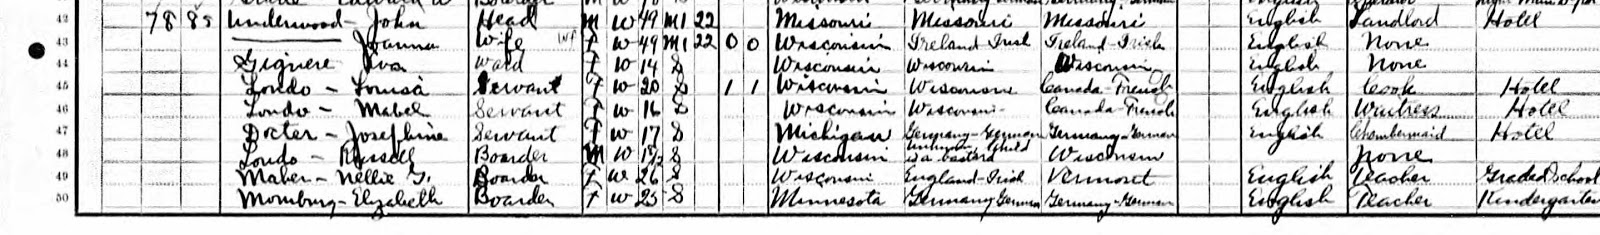 42 78 85 Underwood - John Head M W 49 M1 22 Missouri Missouri Missouri English Landlord Hotel
43 Joanna Wife F W 49 M1 22 0 0 Wisconsin Ireland-Irish Ireland-Irish English None
44 Giguere Iva Ward F W 14 S Wisconsin Wisconsin Wisconsin English None
45 Londo - Louisa Servant F W 20 S 1 1 Wisconsin Wisconsin Canada-French English Cook Hotel
46 Londo - Mabel Servant F W 16 S Wisconsin Wisconsin Canada-French English Waitress Hotel
47 Docter - Josephine Servant F W 17 S Michigan Germany-German Germany-German English Chambermaid Hotel
48 Londo - Russell Boarder M W S Wisconsin child is a bastard Wisconsin None
49 Maher - Nellie G. Boarder F W 26 S Wisconsin England-Irish Vermont English Teacher Graded School
50 Momburg - Elizabeth Boarder F W 25 S Minnesota Germany German Germany-German English Teacher Kindergarten